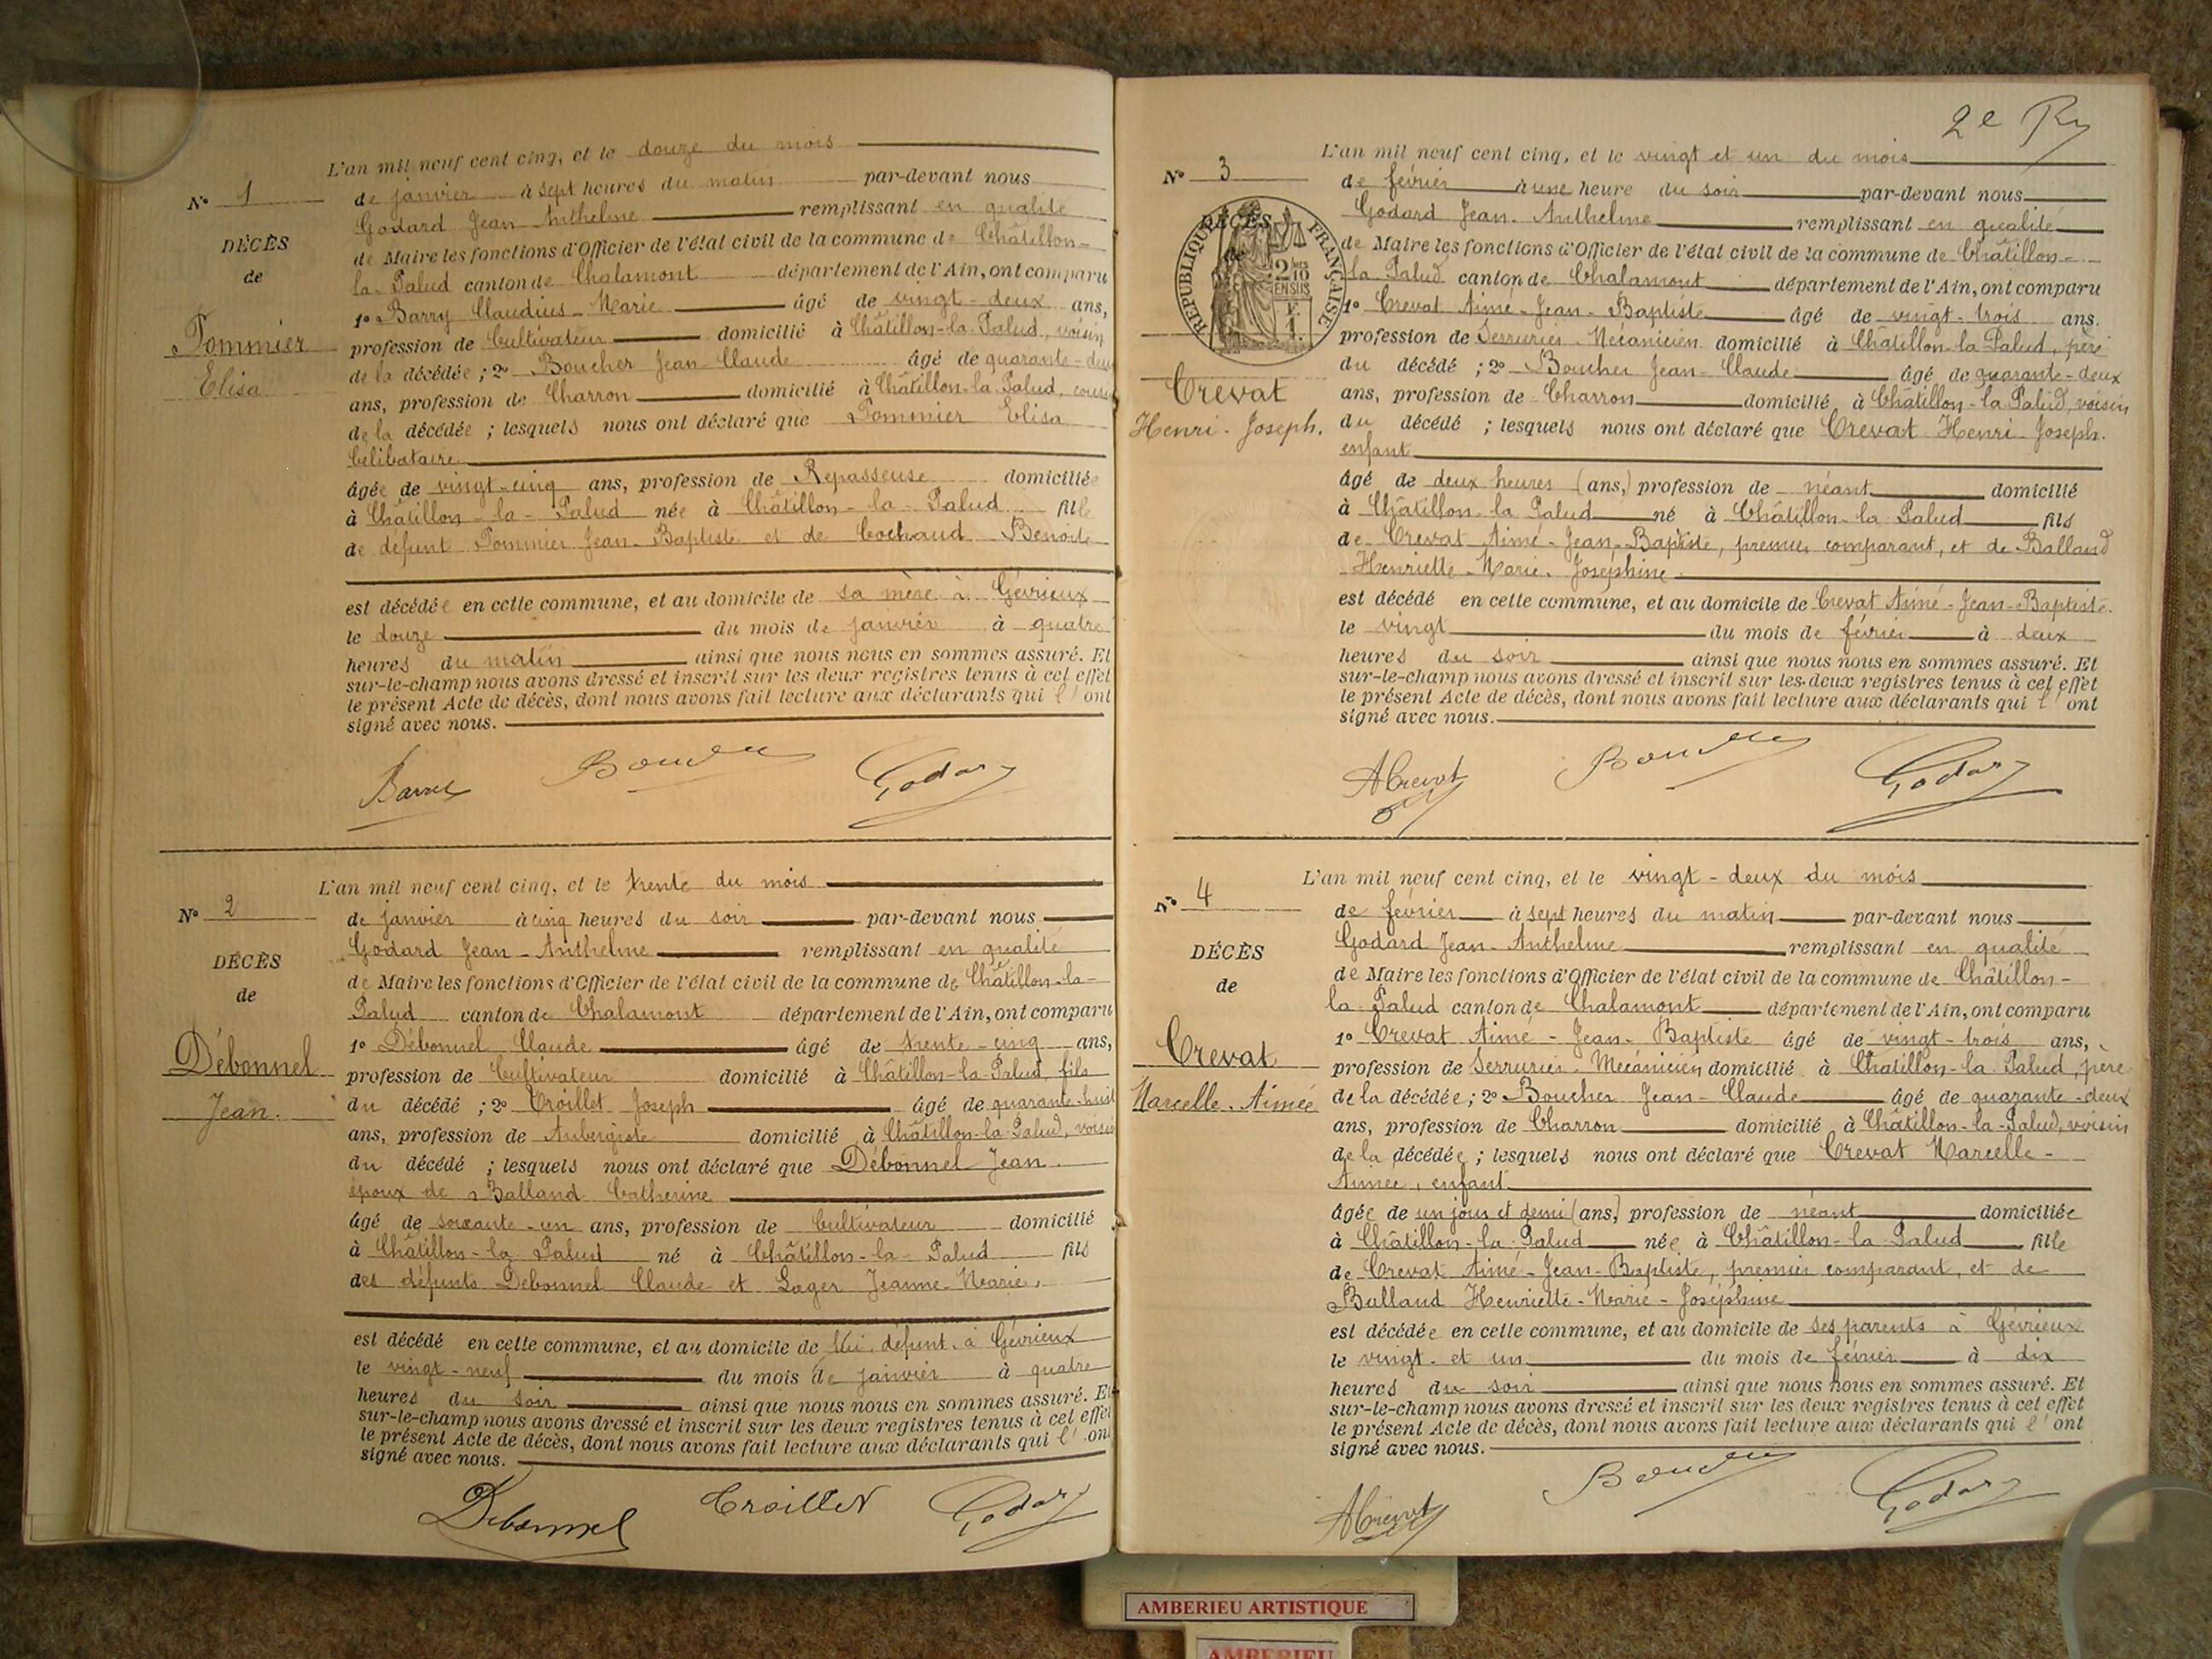 L'an mil neuf cent cinq, et le douze du mois
N° 1
de janvier à sept heures du matin par-devant nous
Godard Jean Anthelme remplissant en qualité
DÉCÈS
de Maire les fonctions d'Officier de l'état civil de la commune de Châtillon-
de
la-Palud canton de Chalamont département de l'Ain, ont comparu
1° Barry Claudius-Marie âgé de vingt-deux ans,
Pommier
profession de Cultivateur domicilié à Châtillon-la-Palud, voisin
de la décédée ; 2° Boucher Jean-Claude âgé de quarante-deux
Elisa
ans, profession de Charron domicilié à Châtillon-la-Palud, cousin
de la décédée ; lesquels nous ont déclaré que Pommier Elisa
Célibataire
âgée de vingt-cinq ans, profession de Repasseuse domiciliée
à Châtillon-la-Palud née à Châtillon-la-Palud fille
de défunt Pommier Jean-Baptiste et de Cochaud Benoite
est décédée en cette commune, et au domicile de sa mère à Gévrieux
le douze du mois de janvier à quatre
heures du matin ainsi que nous nous en sommes assuré. Et
sur-le-champ nous avons dressé et inscrit sur les deux registres tenus à cet effet
le présent Acte de décès, dont nous avons fait lecture aux déclarants qui l'ont
signé avec nous.
Boucher Godard
L'an mil neuf cent cinq, et le trente du mois
N° 2
de janvier à cinq heures du soir par-devant nous
Godard Jean-Anthelme remplissant en qualité
DÉCÈS
de Maire les fonctions d'Officier de l'état civil de la commune de Châtillon-la-
de
Palud canton de Chalamont département de l'Ain, ont comparu
1° Débonnel Claude âgé de trente-cinq ans,
Débonnel
profession de Cultivateur domicilié à Châtillon-la-Palud, fils
Jean.
du décédé ; 2° Croillet Joseph âgé de quarante-huit
ans, profession de Aubergiste domicilié à Châtillon-la-Palud, voisin
du décédé ; lesquels nous ont déclaré que Débonnel Jean.
époux de Balland Catherine
âgé de soixante-un ans, profession de Cultivateur domicilié
à Châtillon-la-Palud né à Châtillon-la-Palud fils
des défunts Débonnel Claude et Lager Jeanne-Marie,
est décédé en cette commune, et au domicile de lui défunt, à Gévrieux
le vingt-neuf du mois de janvier à quatre
heures du soir ainsi que nous nous en sommes assuré. Et
sur-le-champ nous avons dressé et inscrit sur les deux registres tenus à cet effet
le présent Acte de décès, dont nous avons fait lecture aux déclarants qui l'ont
signé avec nous.
Debonnel Croillet Godard
2e
L'an mil neuf cent cinq, et le vingt et un du mois
N° 3
de février à une heure du soir par-devant nous
DÉCÈS
RÉPUBLIQUE FRANÇAISE
Godard Jean-Anthelme remplissant en qualité
de Maire les fonctions d'Officier de l'état civil de la commune de Châtillon-
la Palud canton de Chalamont département de l'Ain, ont comparu
1° Crevat Aimé-Jean-Baptiste âgé de vingt-trois ans.
profession de Serrurier-Mécanicien domicilié à Châtillon-la-Palud, père
du décédé ; 2° Boucher Jean-Claude âgé de quarante-deux
Crevat
ans, profession de Charron domicilié à Châtillon-la-Palud, voisin
Henri-Joseph.
du décédé ; lesquels nous ont déclaré que Crevat Henri-Joseph.
enfant
âgé de deux heures (ans,) profession de néant domicilié
à Châtillon-la-Palud né à Châtillon-la-Palud fils
de Crevat Aimé-Jean-Baptiste, premier comparant, et de Balland
Henriette-Marie-Joséphine
est décédé en cette commune, et au domicile de Crevat Aimé-Jean-Baptiste.
le vingt du mois de février à deux
heures du soir ainsi que nous nous en sommes assuré. Et
sur-le-champ nous avons dressé et inscrit sur les deux registres tenus à cet effet
le présent Acte de décès, dont nous avons fait lecture aux déclarants qui l'ont
signé avec nous.
ACrevat Boucher Godard
L'an mil neuf cent cinq, et le vingt-deux du mois
N° 4
de février à sept heures du matin par-devant nous
Godard Jean-Anthelme remplissant en qualité
DÉCÈS
de Maire les fonctions d'Officier de l'état civil de la commune de Châtillon-
de
la-Palud canton de Chalamont département de l'Ain, ont comparu
1° Crevat Aimé-Jean-Baptiste âgé de vingt-trois ans,
Crevat
profession de Serrurier-Mécanicien domicilié à Châtillon-la-Palud, père
Marcelle-Aimée
de la décédée ; 2° Boucher Jean-Claude âgé de quarante-deux
ans, profession de Charron domicilié à Châtillon-la-Palud, voisin
de la décédée ; lesquels nous ont déclaré que Crevat Marcelle-
Aimée, enfant
âgée de un jour et demi (ans,) profession de néant domiciliée
à Châtillon-la-Palud née à Châtillon-la-Palud fille
de Crevat Aimé-Jean-Baptiste, premier comparant, et de
Balland Henriette-Marie-Joséphine
est décédée en cette commune, et au domicile de ses parents à Gévrieux
le vingt-et un du mois de février à dix
heures du soir ainsi que nous nous en sommes assuré. Et
sur-le-champ nous avons dressé et inscrit sur les deux registres tenus à cet effet
le présent Acte de décès, dont nous avons fait lecture aux déclarants qui l'ont
signé avec nous.
ACrevat Boucher Godard
AMBERIEU ARTISTIQUE
AMBERIEU